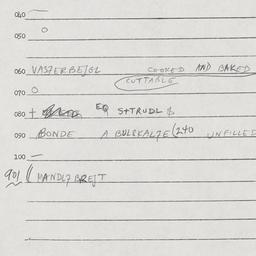 040 —
050 O
060 VASTERBEJGL COOKED AND BAKED
CUTTABLE
070 O
080 + EQ STRUDL $
090 BONDE A BULRKALZE (240 UNFILLED
100 —
901 MANDLZ BREJT